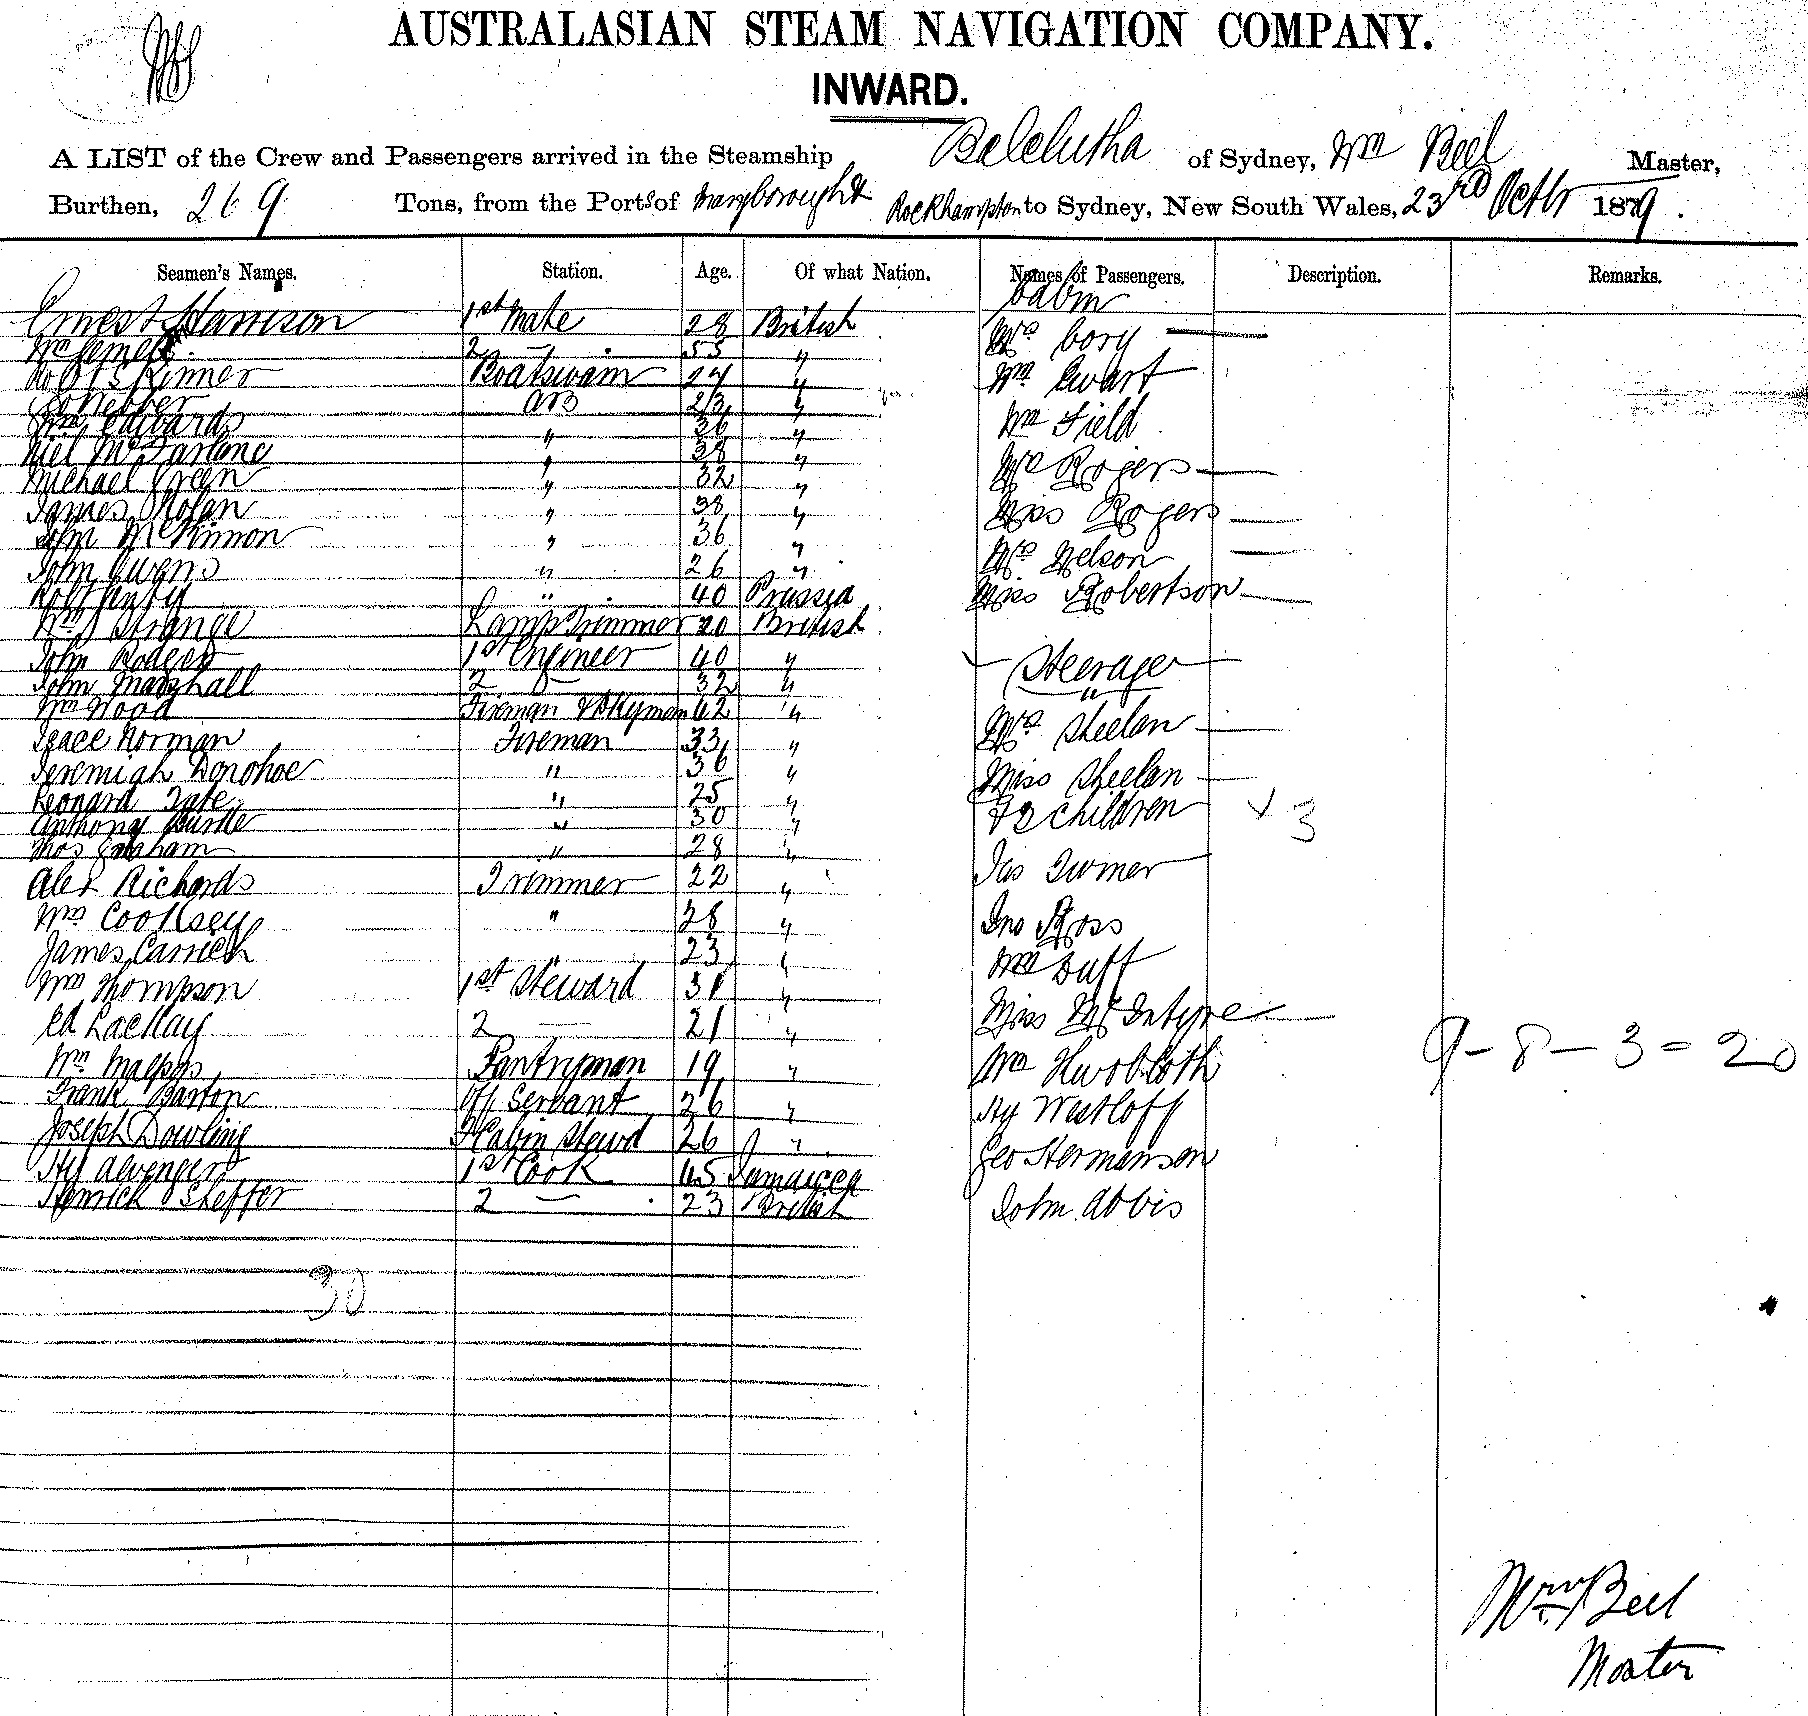 AUSTRALASIAN STEAM NAVIGATION COMPANY.
INWARD.
A LIST of the Crew and Passengers arrived in the Steamship Balclutha of Sydney, Wm Beel Master,
Burthen, 269 Tons, from the Ports of Maryborough & Rockhampton to Sydney, New South Wales, 23rd Octbr 1879.
Seamen's Names. Station. Age. Of what Nation. Names of Passengers. Description. Remarks.
Cabin
Ernest Harrison 1st Mate 28 British
Mrs Cory
Wm 2 — 53 "
Robt Skinner Boatswain 27 "
Wm Ewart
Webber AB 23 "
Wm Edwards " 36 "
Wm Field
Niel McFarlane " 38 "
Mrs Rogers
Michael Green " 32 "
James Nolan " 38 "
Miss Rogers
John McKinnon " 36 "
Mrs Nelson
John Owens " 26 "
Robt " 40 Prussia
Miss Robertson
Wm Strange Lamp Trimmer 20 British
John Rodger 1st Engineer 40 "
Steerage
John Marshall 2 — 32 "
"
Wm Wood Fireman & Dkyman 42 "
Mrs Sheelan
Isacc Norman Fireman 33 "
Jeremiah Donohoe " 36 "
Miss Sheelan
Leonard Tate " 25 "
& 2 Children 3
Anthony Burke " 30 "
Thos Graham " 28 "
Jas Turner
Alex Richards Trimmer 22 "
Wm Cooksey " 28 "
Jno Ross
James Carrick " 23 "
Wm Duff
Wm Thompson 1st Steward 31 "
Miss McIntyre
Ed Lackay 2 — 21 "
9 - 8 - 3 = 20
Wm Pantryman 19 "
Wm
Frank Barton Off Servant 26 "
Hy Westloff
Joseph Dowling F Cabin Stewd 26 "
Geo Hermansen
Hy Alvenger 1st Cook 45 Jamaica
Henrick Sheffer 2 — 23 British
John Abbis
30
Wm Beel
Master